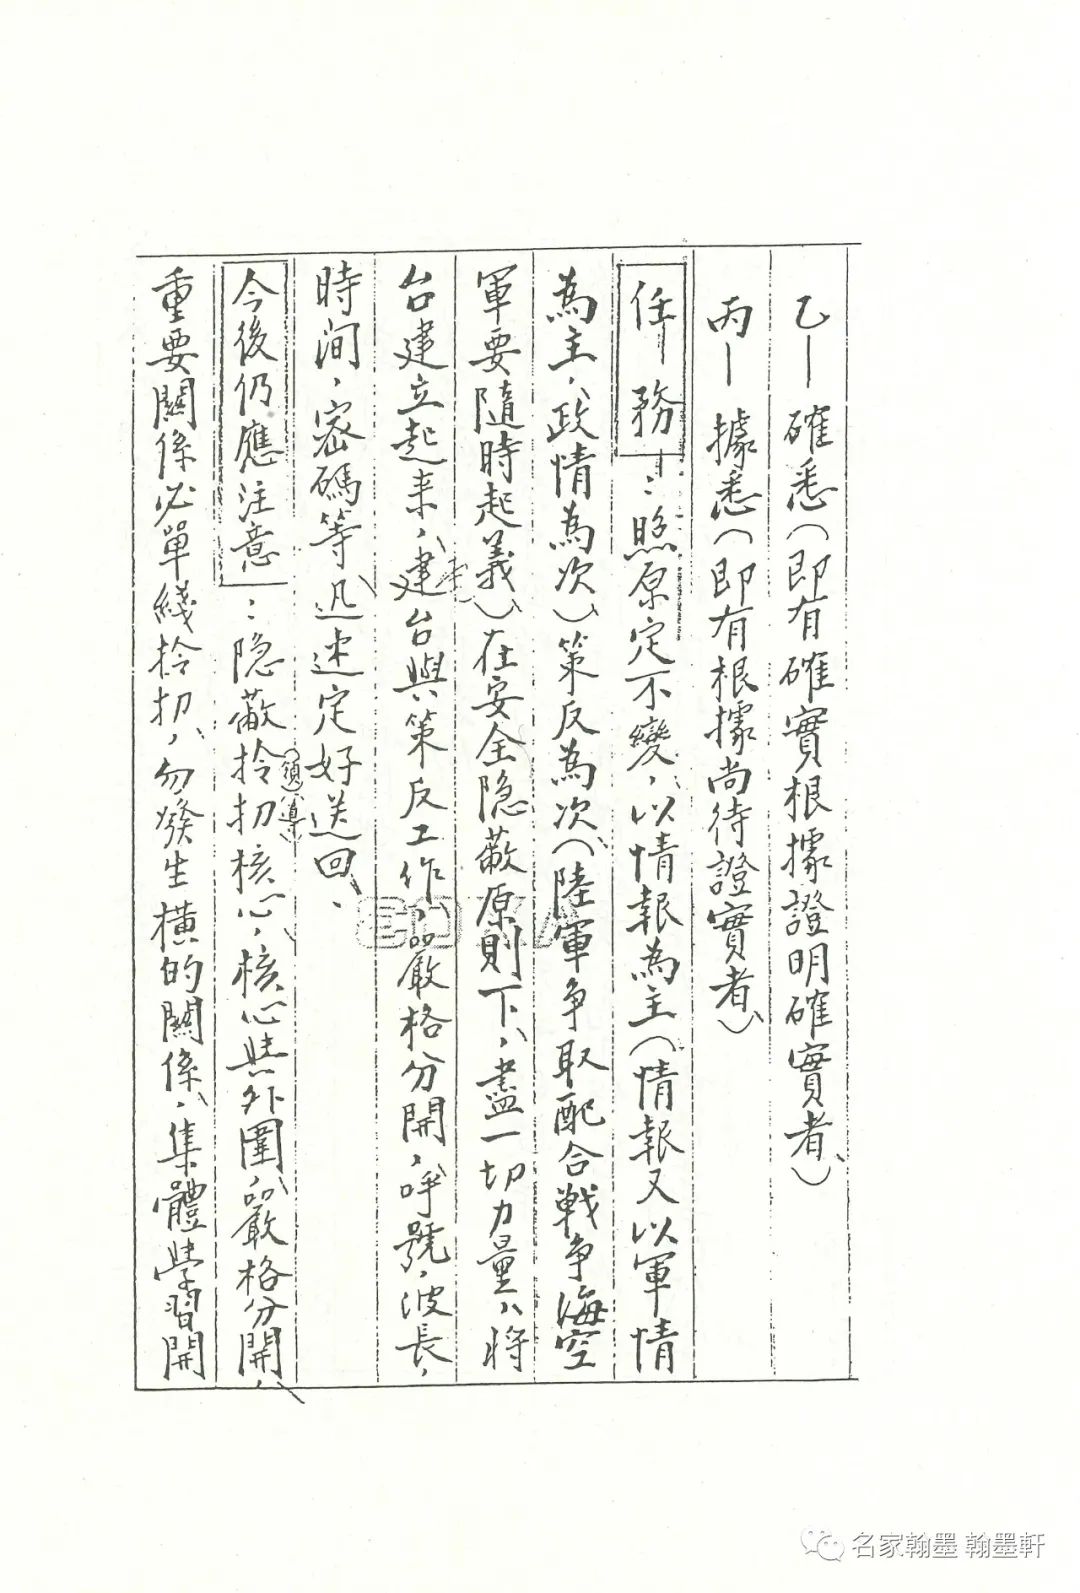 乙—確悉（即有確實根據證明確實者、）
丙—據悉（即有根據尚待證實者、）
任務：照原定不變、以情報為主（情報又以軍情
為主、政情為次）策反為次（陸軍争取配合戦争海空
軍要隨時起義）在安全隐蔽原則下、盡一切力量、将
台建立起来、建台與策反工作、嚴格分開、呼號、波長、
時间、密碼等迅速定好送回、
今後仍應注意：隐蔽拎扨（領導）核心、核心與外圍、嚴格分開、
重要關係必單綫拎扨、勿發生横的關係、集體學習開
名家翰墨 翰墨軒